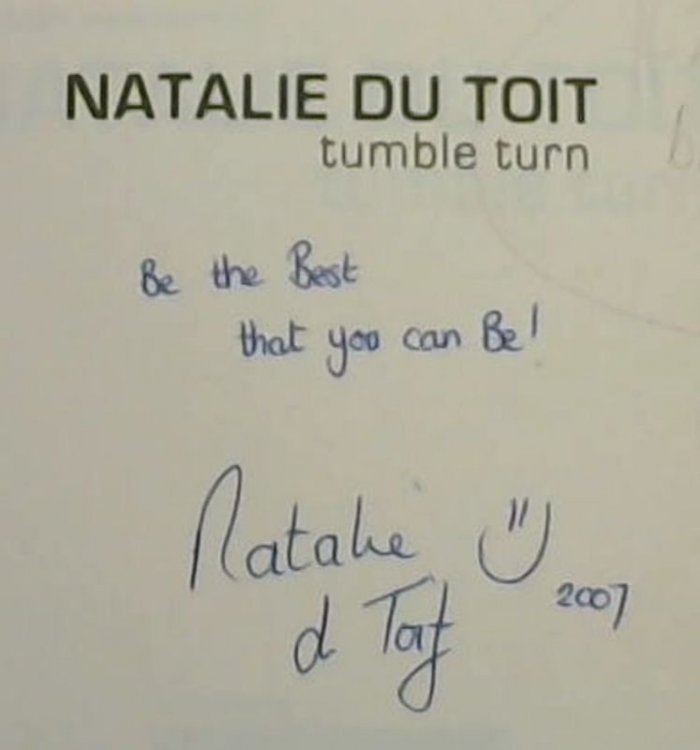 NATALIE DU TOIT
tumble turn
Be the Best
that you can Be!
Natalie
2007
d Toit